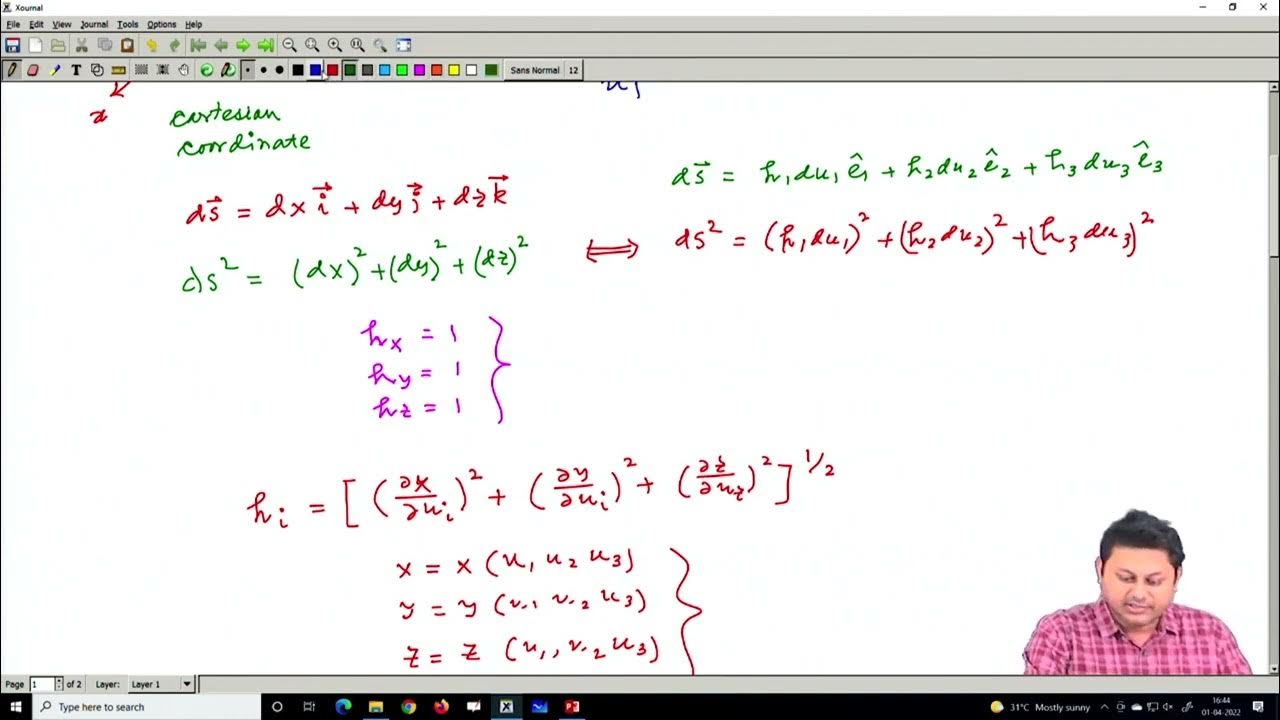 Xournal
File Edit View Journal Tools Options Help
Sans Normal 12
x
u1
cartesian
coordinate
ds⃗ = dx i⃗ + dy j⃗ + dz k⃗
ds⃗ = h₁du₁ ê₁ + h₂du₂ ê₂ + h₃du₃ ê₃
ds² = (dx)² + (dy)² + (dz)²
⟺ ds² = (h₁du₁)² + (h₂du₂)² + (h₃du₃)²
hx = 1
hy = 1
hz = 1
hᵢ = [(∂x/∂uᵢ)² + (∂y/∂uᵢ)² + (∂z/∂u_z)²]^1/2
x = x (u₁ u₂ u₃)
y = y (u₁ u₂ u₃)
z = z (u₁, u₂ u₃)
Page 1 of 2 Layer: Layer 1
Type here to search
31°C Mostly sunny
16:44
01-04-2022